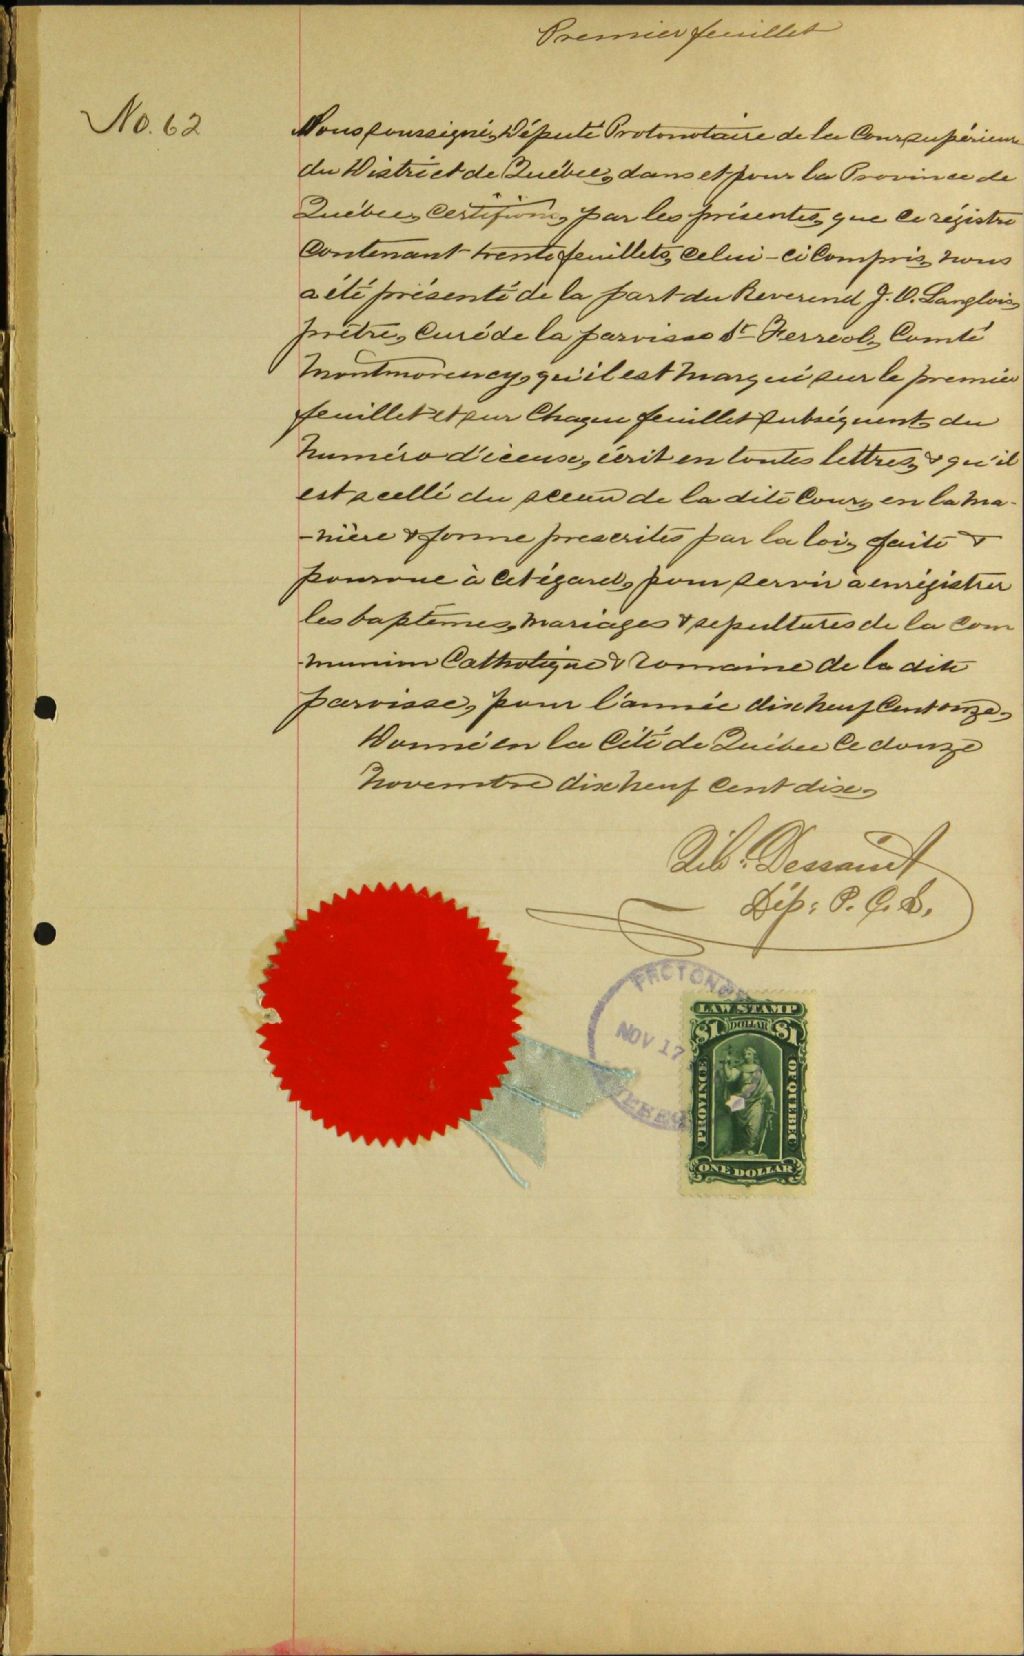 Premier feuillet
No. 62
Nous soussigné, Député Protonotaire de la Cour supérieure
du District de Québec, dans et pour la Province de
Québec, certifions, par les présentes, que ce régistre
contenant trente feuillets, celui-ci compris, nous
a été présenté de la part du Reverend J. O. Langlois,
prêtre, curé de la paroisse St Ferreol, Comté
Montmorency, qu'il est marqué sur le premier
feuillet et sur chaque feuillet subséquent, du
numéro d'iceux, écrit en toutes lettres, & qu'il
est scellé du sceau de la dite Cour, en la ma-
-nière & forme prescrites par la loi, faite &
pourvue à cet égard, pour servir à enrégistrer
les baptêmes, mariages & sépultures de la com
-munion Catholique & romaine de la dite
paroisse, pour l'année dix neuf cent onze,
Donné en la Cité de Québec ce douze
Novembre dix neuf cent dix,
Dessaint
Dép: P. C. S.
NOV 17
LAW STAMP
$1 DOLLAR $1
PROVINCE
OF QUEBEC
ONE DOLLAR